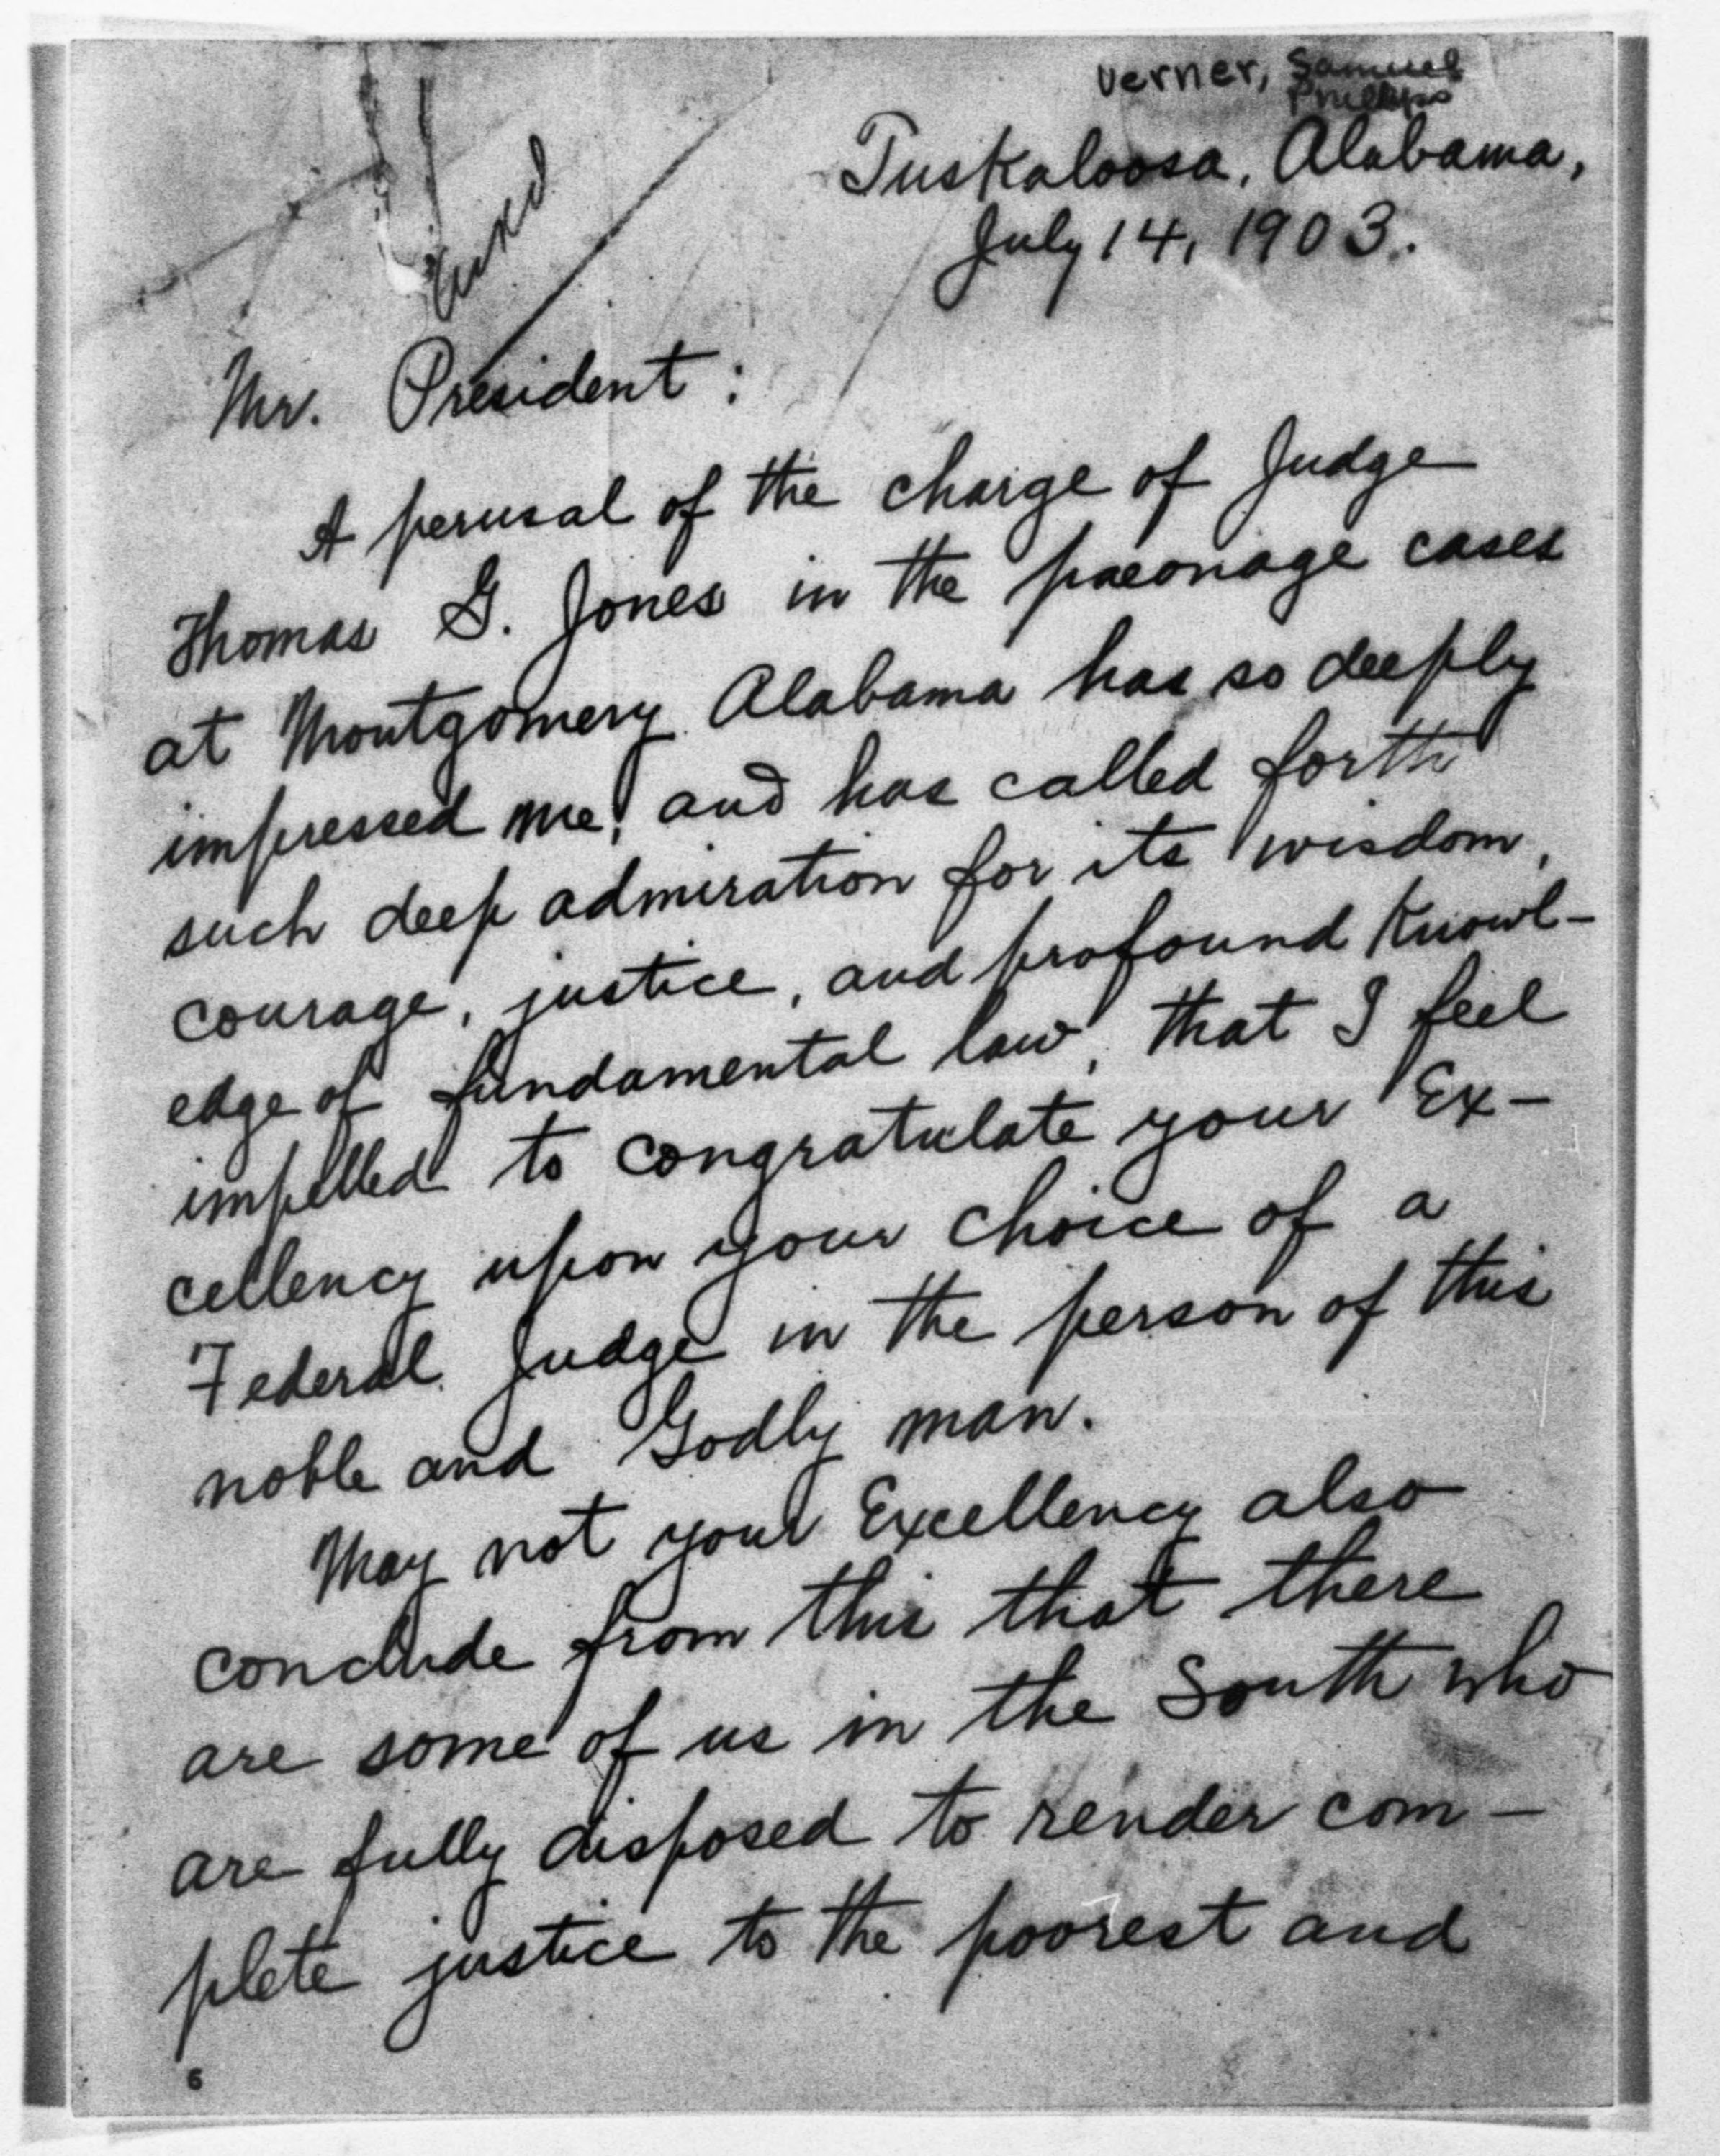 Verner, Samuel
Phillips
Tuskaloosa, Alabama,
July 14, 1903.
Mr. President:
A perusal of the charge of Judge
Thomas G. Jones in the paeonage cases
at Montgomery Alabama has so deeply
impressed me, and has called forth
such deep admiration for its wisdom,
courage, justice, and profound Knowl-
edge of fundamental law, that I feel
impelled to congratulate your Ex-
cellency upon your choice of a
Federal Judge in the person of this
noble and Godly man.
May not your Excellency also
conclude from this that there
are some of us in the South who
are fully disposed to render com-
plete justice to the poorest and
6